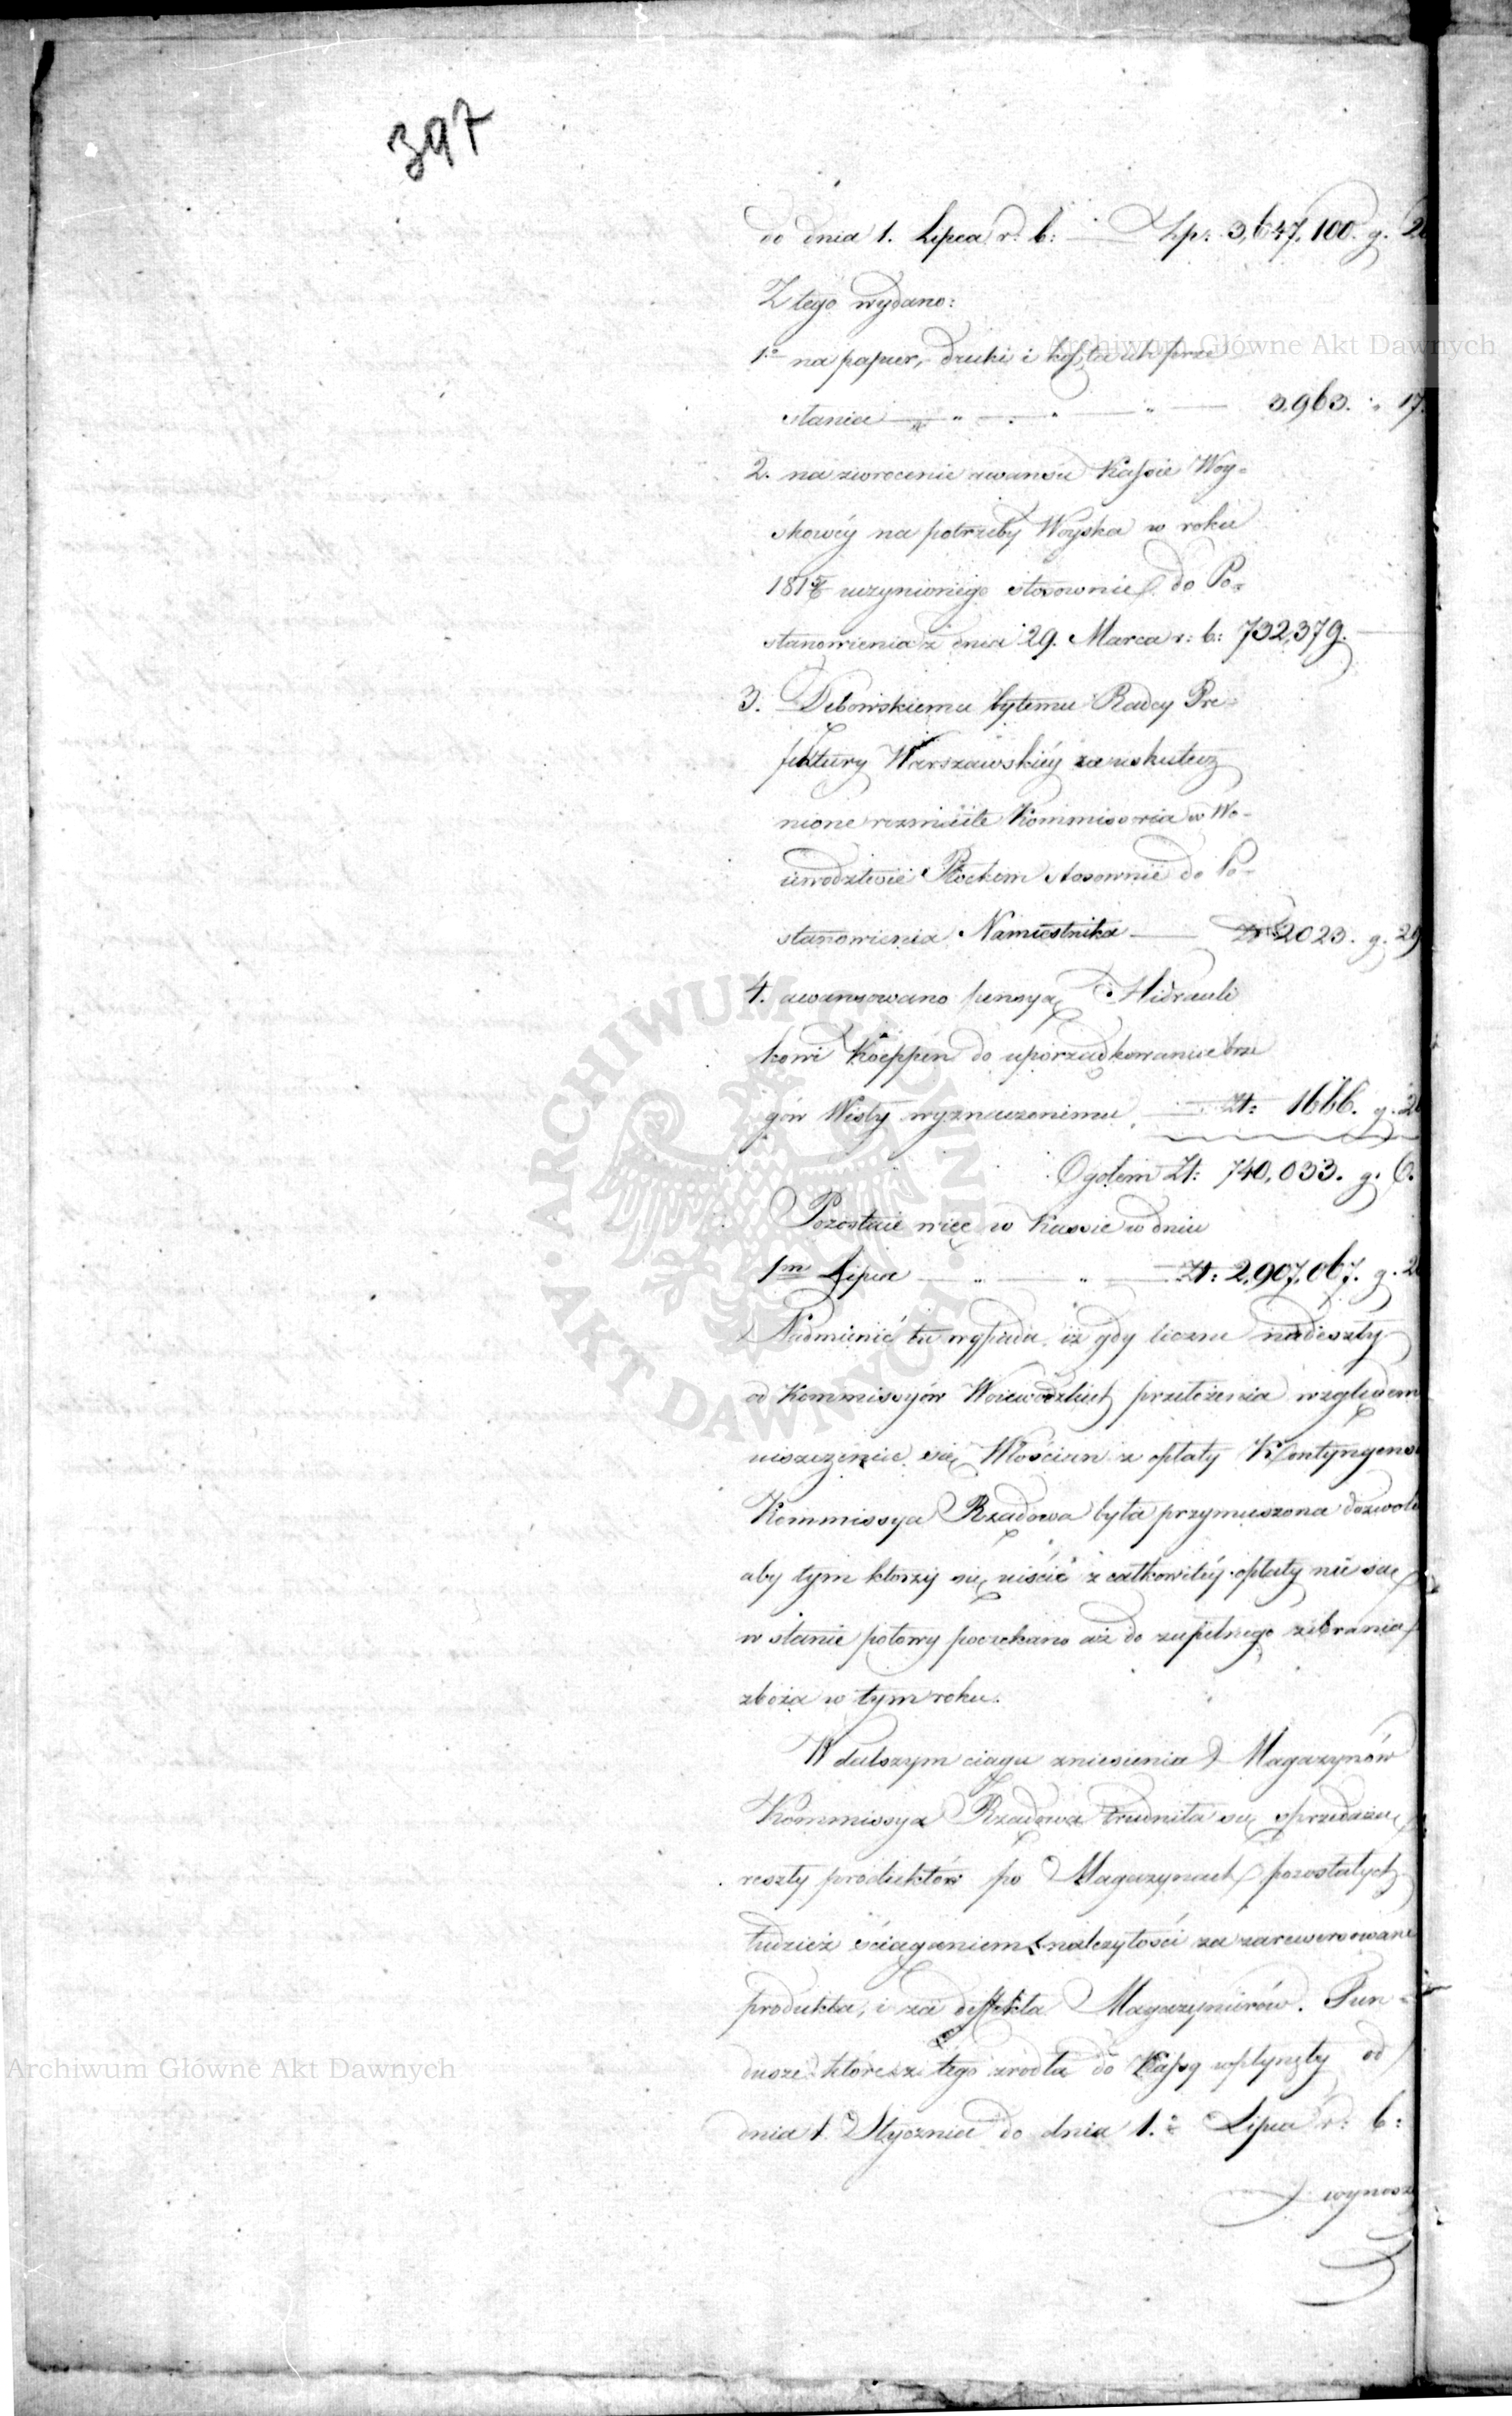 397
do dnia 1. Lipca r: b: Zp: 3,647,100. g. 2
Z tego wydano:
1o na papier, druki i koszta ich prze
słania 3,963. " 17.
2. na zwrocenie awansu Kassie Woy-
skowéy na potrzeby Woyska w roku
uczynionego stosownie do Po-
stanowienia z dnia 29. Marca r: b: 732,379.
3. Debowskiemu byłemu Radcy Pre-
fektury Warszawskiéy za uskutecz
nione rozmaite Kommissoria w Wo-
iewodztwie Płockim stosownie do Po-
stanowienia Namiestnika 2023. g. 29
4. awansowano pensyą Hidrauli
kowi Koeppen do uporządkowania brze
gów Wisły wyznaczonemu Zł: 1666. g. 2
Ogołem Zł: 740,033. g. 6.
Pozostaie więc w Kassie w dniu
1m Lipca Zł: 2,907,067. g. 2
Nadmienić tu wypada iż gdy liczne nadeszły
od Kommissyów Woiewodzkich przełożenia względem
uiszczenia się Włościan z opłaty Kontyngens
Kommissya Rządowa była przymuszona dozwoli
aby tym ktorzy się uiścić z całkowitéy opłaty nie są
w stanie połowy poczekano aż do zupełnego zebrania
zboża w tym roku.
W dalszym ciągu zniesienia Magazynów
Kommissya Rządowa trudniła się sprzedażą
reszty produktów po Magazynach pozostałych
tudzież ściąganiem należytości za zarewersowane
produkta, i za deffekta Magazynierów. Fun-
dusze które z tego zrodła do Kassy wpłynęły od
dnia 1. Stycznia do dnia 1.o Lipca r: b:
wynosz
Archiwum Główne Akt Dawnych
ARCHIWUM GŁÓWNE AKT DAWNYCH
Archiwum Główne Akt Dawnych